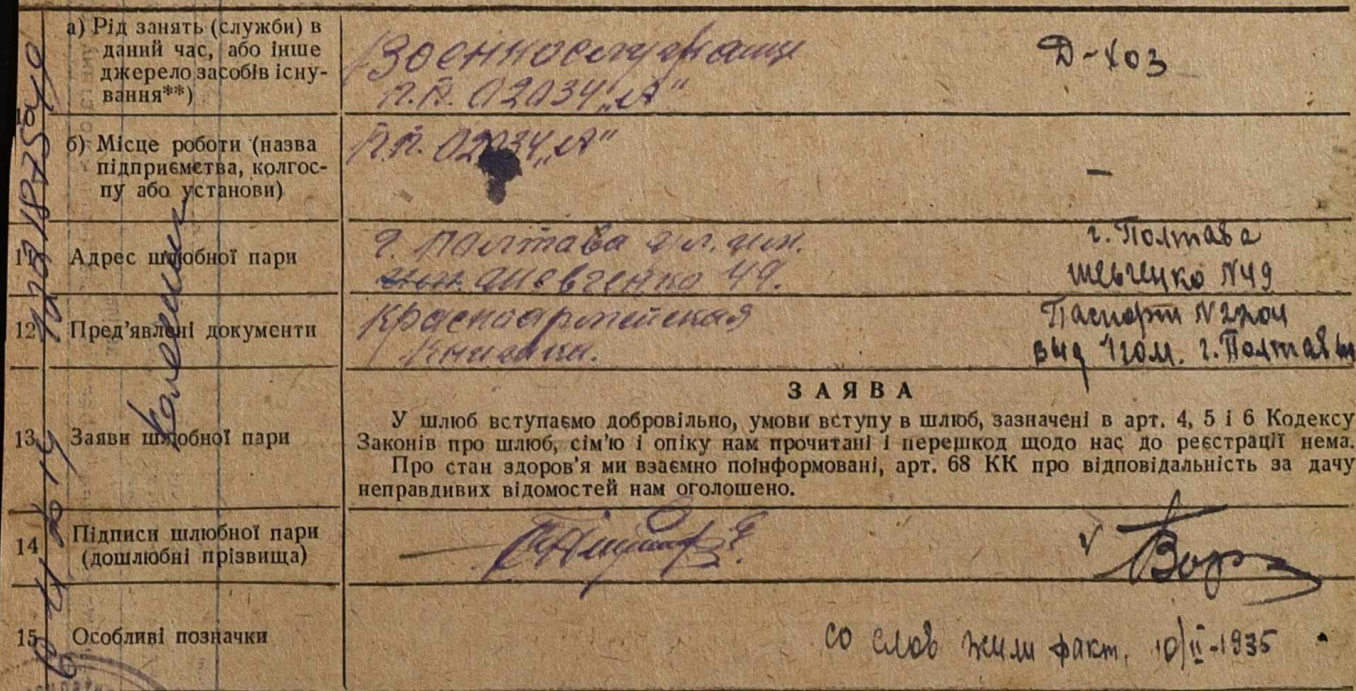 а) Рід занять (служби) в
даний час, або інше
джерело засобів існу-
вання**)
Военнослужащи
П.П. 02034 „А“
Д-хоз
б) Місце роботи (назва
підприємства, колгос-
пу або установи)
П.П. 02034 „А“
—
11 Адрес шлюбної пари
г. Полтава ул. им.
Шевченко 49.
г. Полтава
Шевченко №49
12 Пред'явлені документи
Красноармейская
Книжка.
Паспорт
выд 1гом. г. Полтавы
13 Заяви шлюбної пари
ЗАЯВА
У шлюб вступаємо добровільно, умови вступу в шлюб, зазначені в арт. 4, 5 і 6 Кодексу
Законів про шлюб, сім'ю і опіку нам прочитані і перешкод щодо нас до реєстрації нема.
Про стан здоров'я ми взаємно поінформовані, арт. 68 КК про відповідальність за дачу
неправдивих відомостей нам оголошено.
14 Підписи шлюбної пари
(дошлюбні прізвища)
15 Особливі позначки
со слов жили факт. 10/II-1935